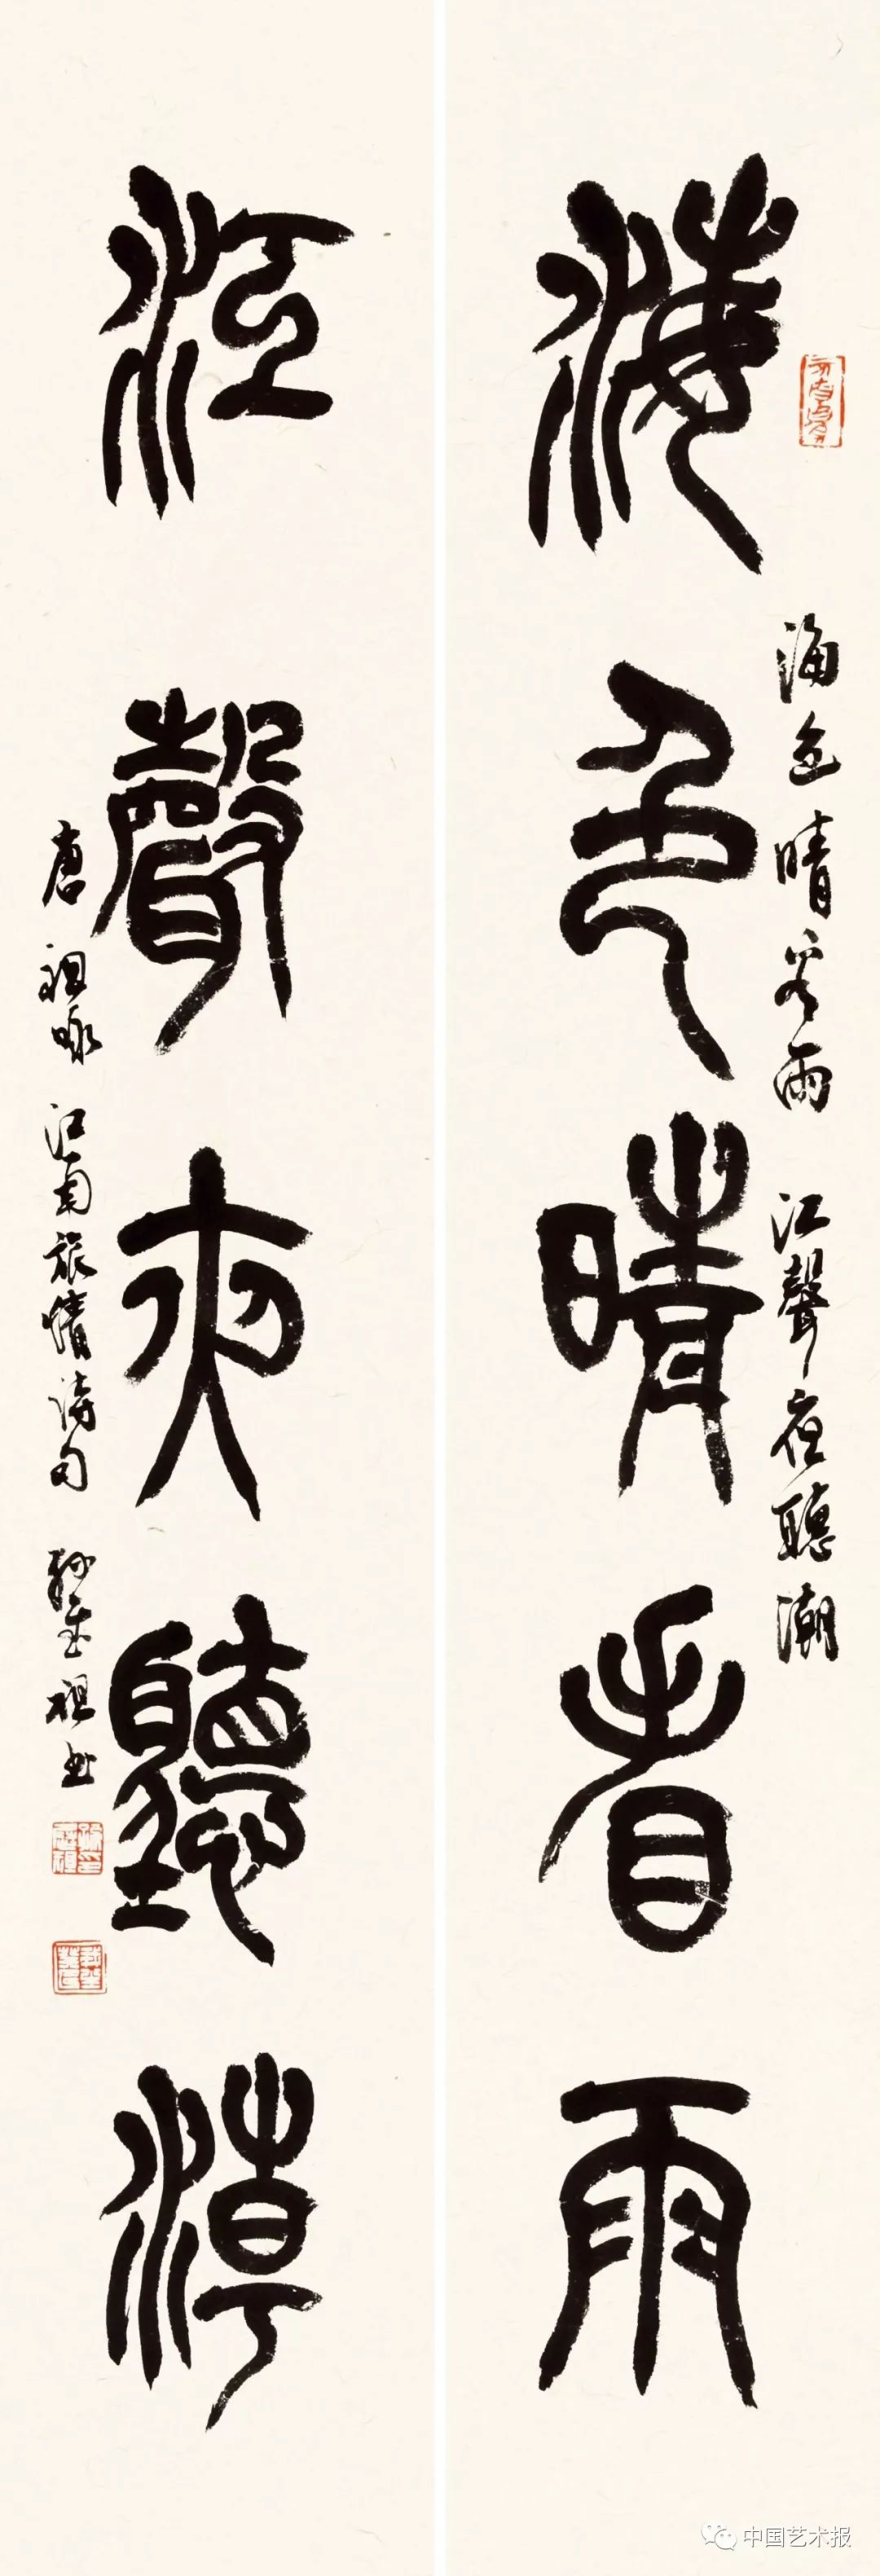 海色晴看雨
海色晴看雨 江聲夜聽潮
江聲夜聽潮
唐 祖咏 江南旅情詩句
中国艺术报